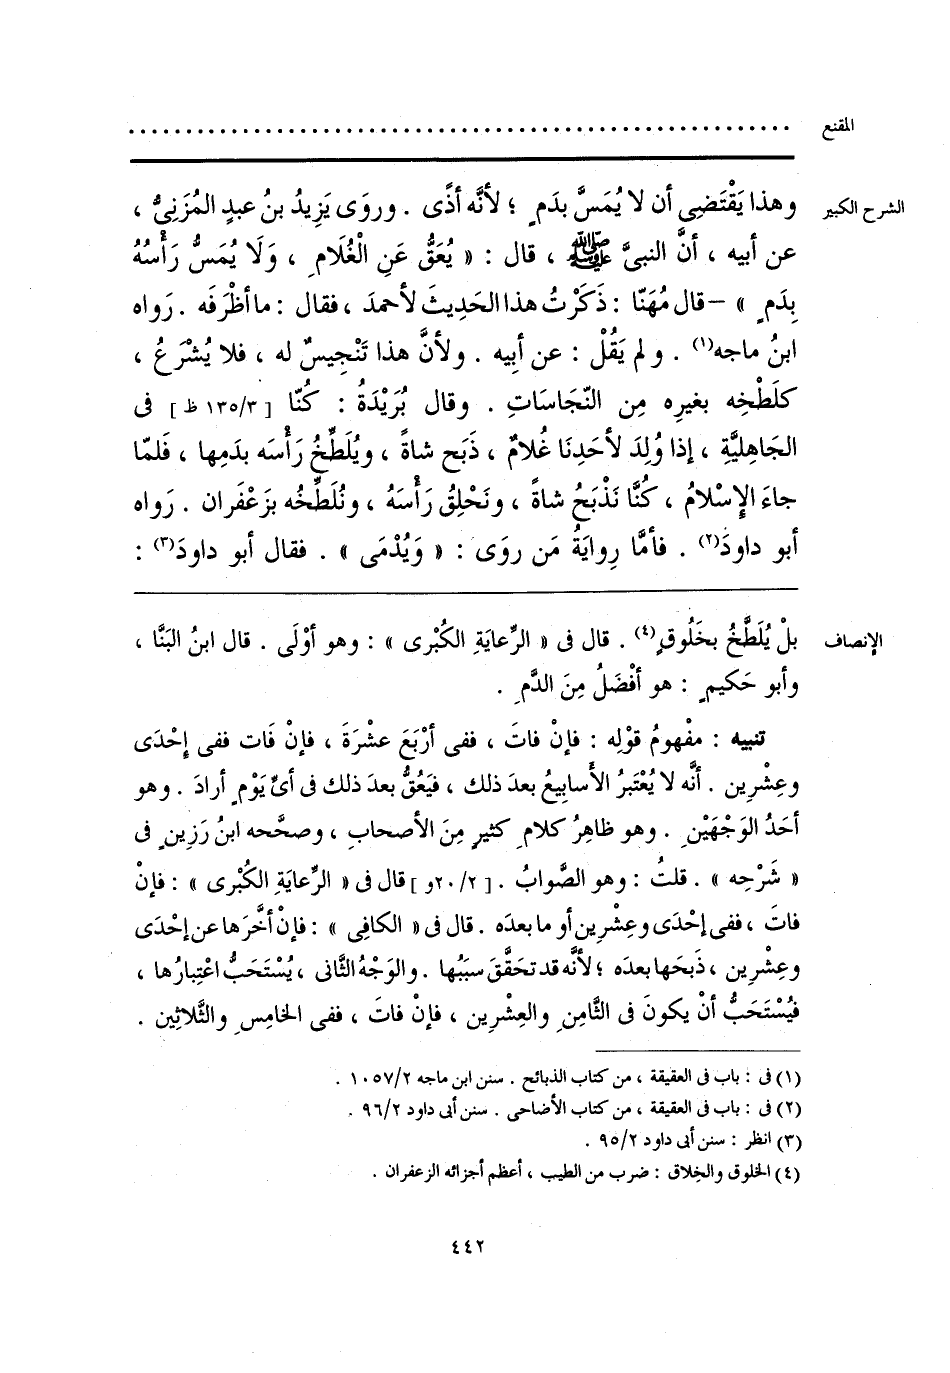 المقنع ................................................................
الشرح الكبير وهذا يَقْتَضِى أن لا يُمَسَّ بدَمٍ ؛ لأنَّه أذًى . وروَى يَزِيدُ بنُ عبدٍ المُزَنِىُّ ،
عن أبيه ، أنَّ النبىَّ ﷺ ، قال : « يُعَقُّ عَنِ الْغُلَامِ ، وَلَا يُمَسُّ رَأْسُهُ
بِدَمٍ » – قال مُهَنَّا : ذَكَرْتُ هذا الحَدِيثَ لأحمدَ ، فقال : ما أظْرَفَه . رَواه
ابنُ ماجه(١) . ولم يَقُلْ : عن أبيه . ولأنَّ هذا تَنْجِيسٌ له ، فلا يُشْرَعُ ،
كلَطْخِه بغيرِه مِن النَّجَاساتِ . وقال بُرَيْدَةُ : كُنّا [ ٣/‏١٣٥ ظ ] فى
الجَاهليَّةِ ، إذا وُلِدَ لأحَدِنَا غُلامٌ ، ذَبَح شاةً ، ويُلَطِّخُ رَأْسَه بدَمِها ، فلمّا
جاءَ الإِسْلامُ ، كُنَّا نَذْبَحُ شاةً ، ونَحْلِقُ رَأْسَهُ ، ونُلَطِّخُه بزَعْفَران . رَواه
أبو داودَ(٢) . فأمَّا رِوايَةُ مَن روَى : « وَيُدْمَى » . فقال أبو داودَ(٣) :
الإنصاف بلْ يُلَطَّخُ بخَلُوقٍ(٤) . قال فى « الرِّعايَةِ الكُبْرى » : وهو أوْلَى . قال ابنُ البَنَّا ،
وأبو حَكيمٍ : هو أفْضَلُ مِنَ الدَّمِ .
تنبيه : مفْهومُ قوْلِه : فإنْ فاتَ ، ففى أرْبَعَ عشْرَةَ ، فإنْ فَات ففى إحْدَى
وعِشْرِين . أنَّه لا يُعْتَبرُ الأَسابِيعُ بعدَ ذلك ، فيَعُقُّ بعدَ ذلك فى أىِّ يَوْمٍ أرادَ . وهو
أحَدُ الوَجْهَيْنِ . وهو ظاهِرُ كلامِ كثيرٍ مِنَ الأصحابِ ، وصحَّحه ابنُ رَزِينٍ فى
« شَرْحِه » . قلتُ : وهو الصَّوابُ . [ ٢/‏٢٠و ] قال فى « الرِّعايَةِ الكُبْرى » : فإنْ
فاتَ ، ففى إحْدَى وعِشْرِين أو ما بعدَه . قال فى « الكافِى » : فإنْ أخَّرَها عن إحْدَى
وعِشْرِين ، ذَبَحَها بعدَه ؛ لأنَّه قد تحَقَّقَ سبَبُها . والوَجْهُ الثَّانى ، يُسْتَحَبُّ اعْتِبارُها ،
فيُسْتَحَبُّ أنْ يكونَ فى الثَّامنِ والعِشْرِين ، فإنْ فاتَ ، ففى الخامسِ والثَّلاثِين .
(١) فى : باب فى العقيقة ، من كتاب الذبائح . سنن ابن ماجه ٢/‏١٠٥٧ .
(٢) فى : باب فى العقيقة ، من كتاب الأضاحى . سنن أبى داود ٢/‏٩٦ .
(٣) انظر : سنن أبى داود ٢/‏٩٥ .
(٤) الخلوق والخِلاق : ضرب من الطيب ، أعظم أجزائه الزعفران .
٤٤٢